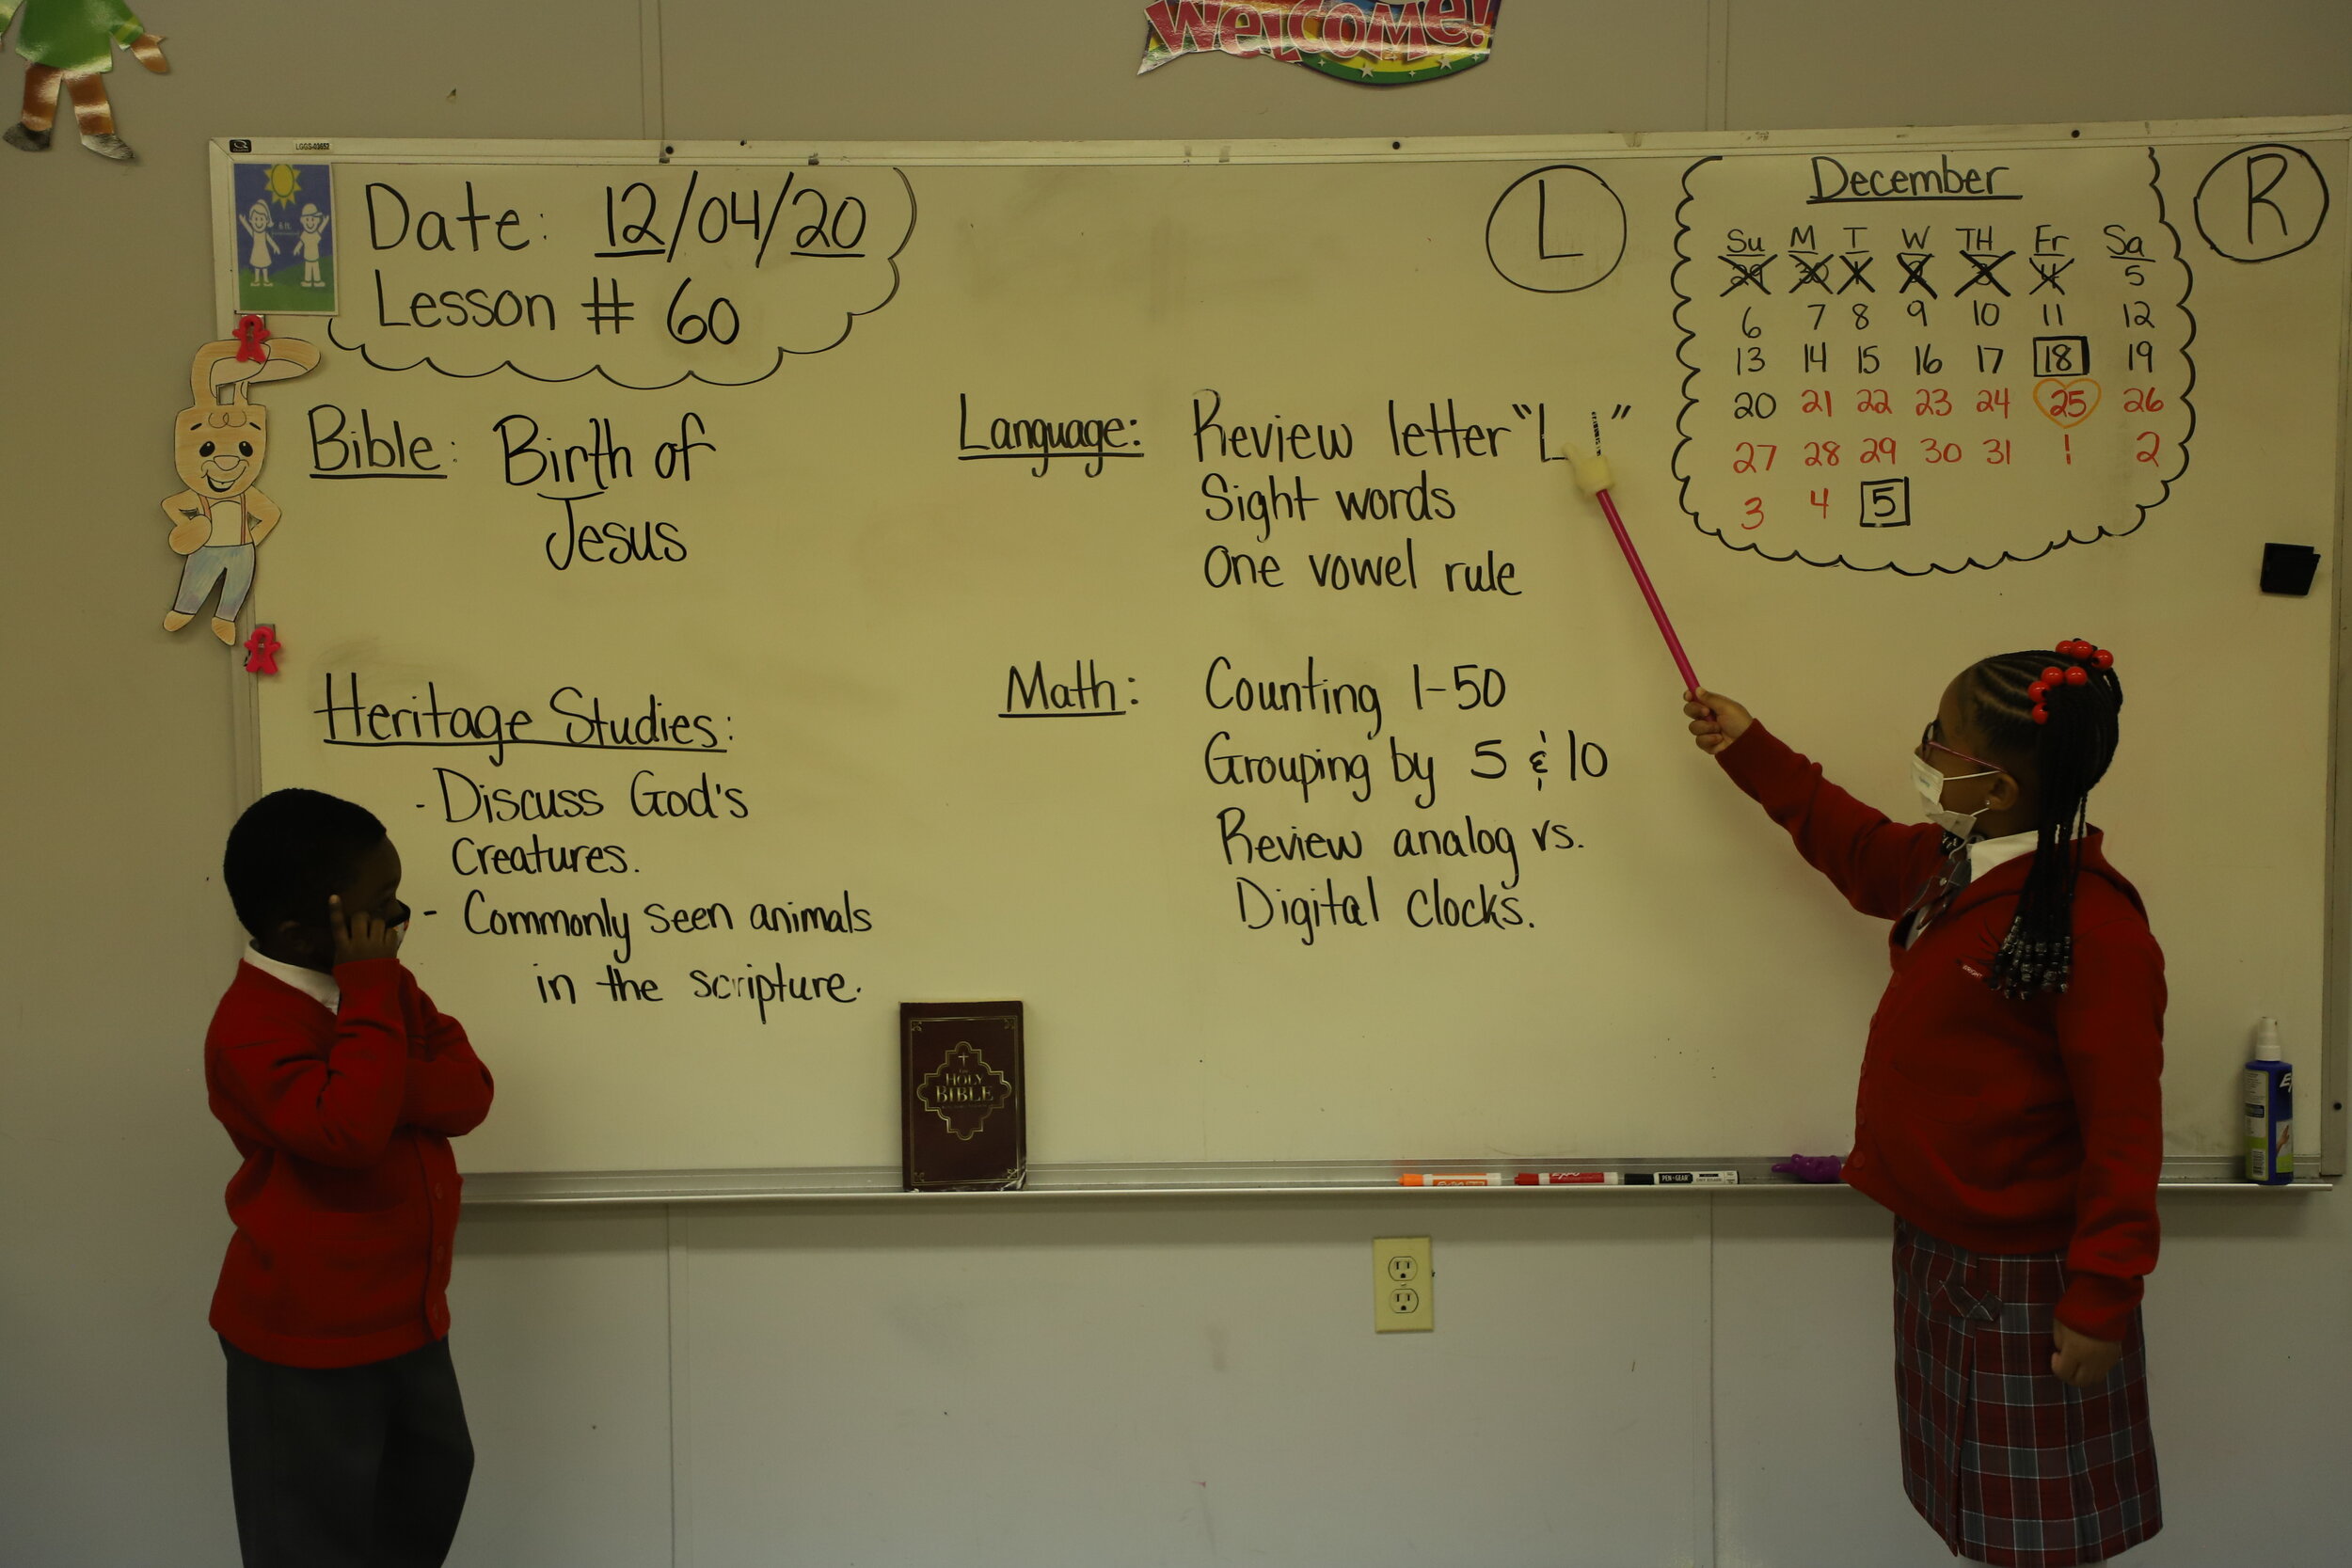 WELCOME!
LGGS-03652
Date: 12/04/20
Lesson # 60
Bible: Birth of
Jesus
Heritage Studies:
- Discuss God's
Creatures.
- Commonly seen animals
in the scripture.
Language: Review letter "L l"
Sight words
One vowel rule
Math: Counting 1-50
Grouping by 5 & 10
Review analog vs.
Digital Clocks.
L
December
Su M T W TH Fr Sa
29 30 1 2 3 4 5
6 7 8 9 10 11 12
13 14 15 16 17 18 19
20 21 22 23 24 25 26
27 28 29 30 31 1 2
3 4 5
R
HOLY
BIBLE
EXPO
PEN+GEAR